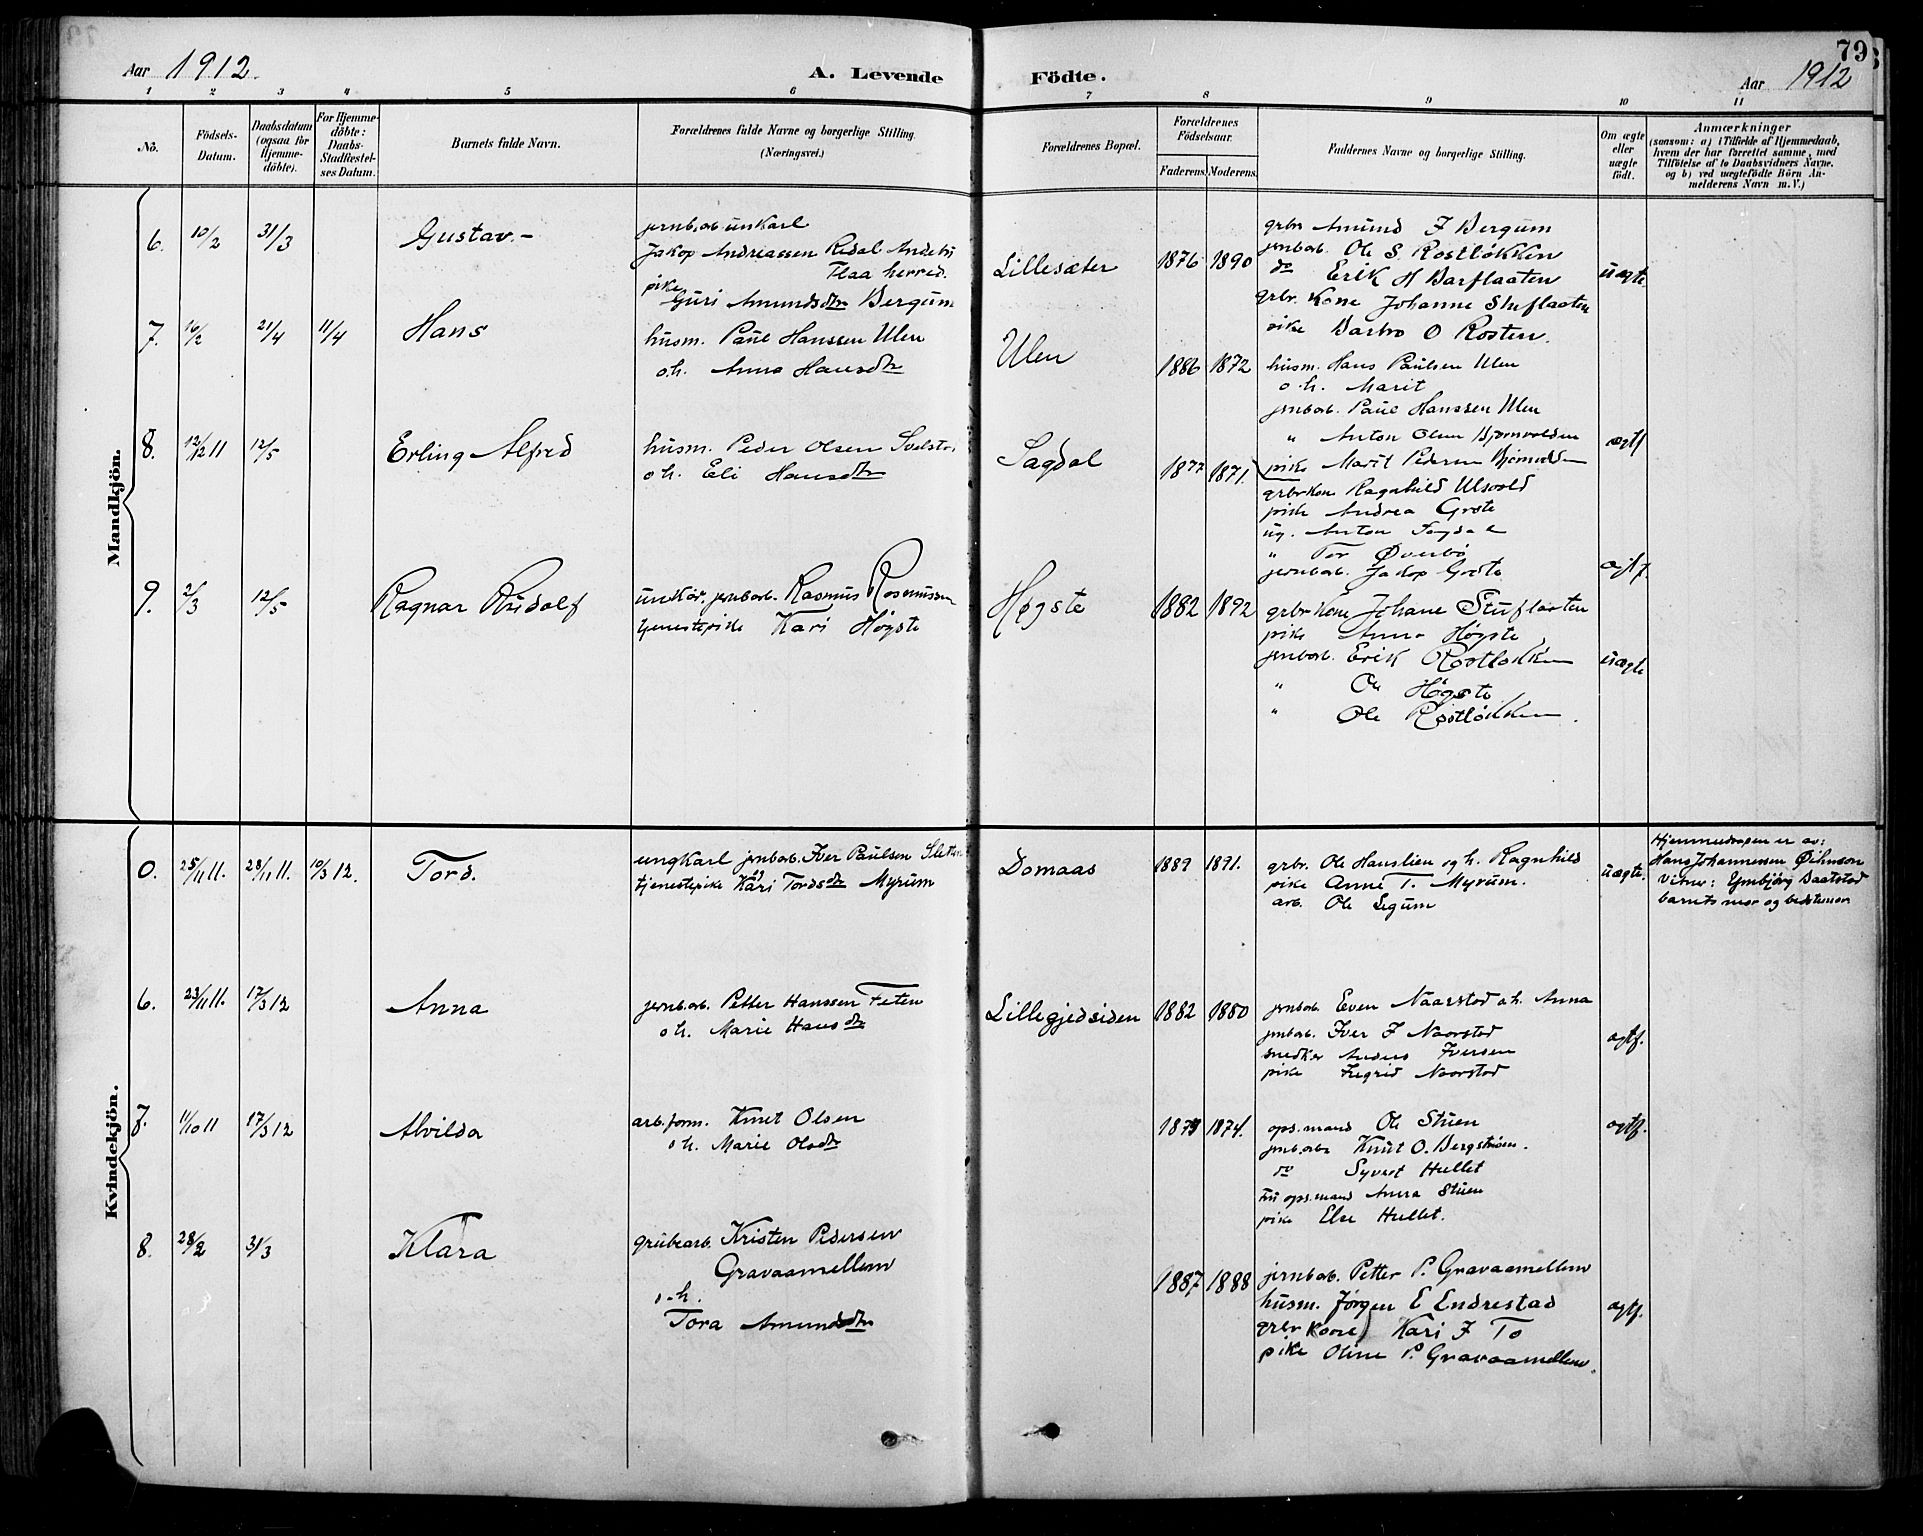 79
Aar 1912.
A. Levende
Födte.
Aar 1912
1 2 3 4 5 6 7 8 9 10 11
No.
Födsels-
Datum.
Daabsdatum
(ogsaa for
Hjemme-
döbte).
For Hjemme-
döbte:
Daabs-
Stadfæstel-
ses Datum.
Barnets fulde Navn.
Forældrenes fulde Navne og borgerlige Stilling.
(Næringsvei.)
Forældrenes Bopæl.
Forældrenes
Födselsaar.
Faderens. Moderens.
Faddernes Navne og borgerlige Stilling.
Om ægte
eller
uægte
født.
Anmærkninger
(saasom: a) i Tilfælde af Hjemmedaab,
hvem der har forrettet samme, med
Tilföielse af to Daabsvidners Navne,
og b) ved uægtefödte Börn An-
melderens Navn m. V.)
Mandkjön.
6. 10/2 31/3
Gustav.-
jernb.arb. unkarl
Jakop Andreassen Ridal
Flaa herred.
pike
Guri Amundsdtr Bergum
Lillesæter
1876 1890
grbr Amund J Bergum
jernbarb. Ole S. Rostløkken
do Erik H Barflaaten
grbr. Kone Johanne Stuflaaten
pike Barbro O Rosten.
uægte
7. 16/2 21/4 11/4
Hans
husm. Paul Hanssen Ulen
o.h. Anna Hansdtr
Ulen
1886 1872
husm. Hans Paulsen Ulen
o.h. Marit
jernbarb. Paul Hanssen Ulen
" Anton Olsen
pike Marit Pedersen
ægtf
8. 12/12 11 12/5
Erling Alfred
husm. Peder Olsen
o h. Eli Hansdtr
Sagdal
1877 1871.
grbrkone Ragnhild Ulsvold
pike Andrea Grøte
ug. Anton Sagdal
" Tor Øverbø
jernbarb. Jakop Grøte
ægtf.
9. 2/3 12/5
Ragnar Rudolf
unkar. jernbarb. Rasmus Rasmussen
tjenestepike Kari Høgste
Høgste
1882 1892
grbrkone Johane Stuflaaten
pike Anna Høgste
jernbarb. Erik Rostløkken
" Ole Høgste
" Ole Rostløkken.
uægte
Kvindekjön.
0. 25/11 11. 28/11 11. 10/3 12.
Tord.
ungkarl jernbarb. Iver Paulsen Sletten
tjenestepike Kari Tordsdtr Myrum
og
Domaas
1889 1891.
grbr. Ole Hanslien og h. Ragnhild
pike Anne T. Myrum.
arb. Ole Segum
uægte.
Hjemmedaapen er av:
Hans Johannessen
Vitner: Ymbjørg Baatstad
barnets mor og bedstemor
6. 23/11 11. 17/3 12
Anna
jernbarb. Petter Hanssen Feten
o h. Marie Hansdtr
Lillegjedsiden
1882 1880
jernbarb. Even Naarstad o h. Anna
jernbarb. Iver J Naarstad
snedker Anders Iversen
pike Ingrid Naarstad
ægtf.
7. 11/10 11 17/3 12
Alvilda
arb.form. Knut Olsen
o h. Marie Olsdtr
1874.
ops.mand Ole Stuen
jernb.arb. Knut O. Bergstrøm.
do Syvert Hullet
ops.mand Anna Stuen
pike Else Hullet.
ægtf.
8. 28/2 31/3
Klara
grubearb. Kristen Pedersen
Gravaamellem
o-h.
Tora Amundsdtr
1887 1888
jernbarb. Petter P. Gravaamellem
husm. Jørgen E Endrestad
grbr kone Kari J To
pike Oline P. Gravaamellem.
ægtf.